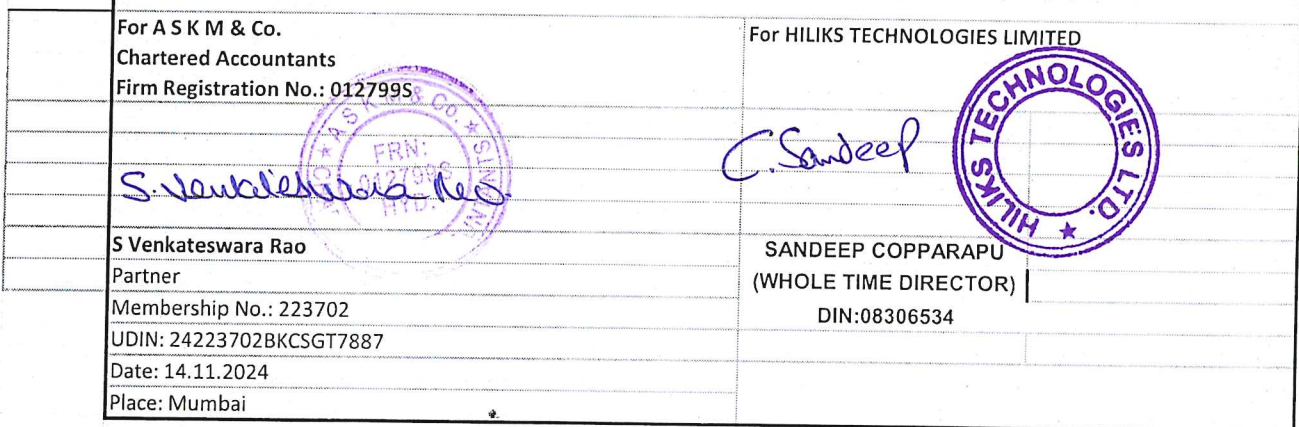 For A S K M & Co.
Chartered Accountants
Firm Registration No.: 012799S
A S K M & Co.
FRN:
012799S
HYD.
S. Venkateswara Rao.
S Venkateswara Rao
Partner
Membership No.: 223702
UDIN: 24223702BKCSGT7887
Date: 14.11.2024
Place: Mumbai
For HILIKS TECHNOLOGIES LIMITED
HILIKS TECHNOLOGIES LTD.
C. Sandeep
SANDEEP COPPARAPU
(WHOLE TIME DIRECTOR)
DIN:08306534